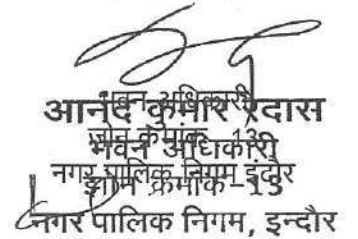 भवन अधिकारी
आनंद कुमार रैदास
जोन क्रमांक - 13
भवन अधिकारी
नगर पालिक निगम इंदौर
झोन क्रमांक-13
नगर पालिक निगम, इन्दौर